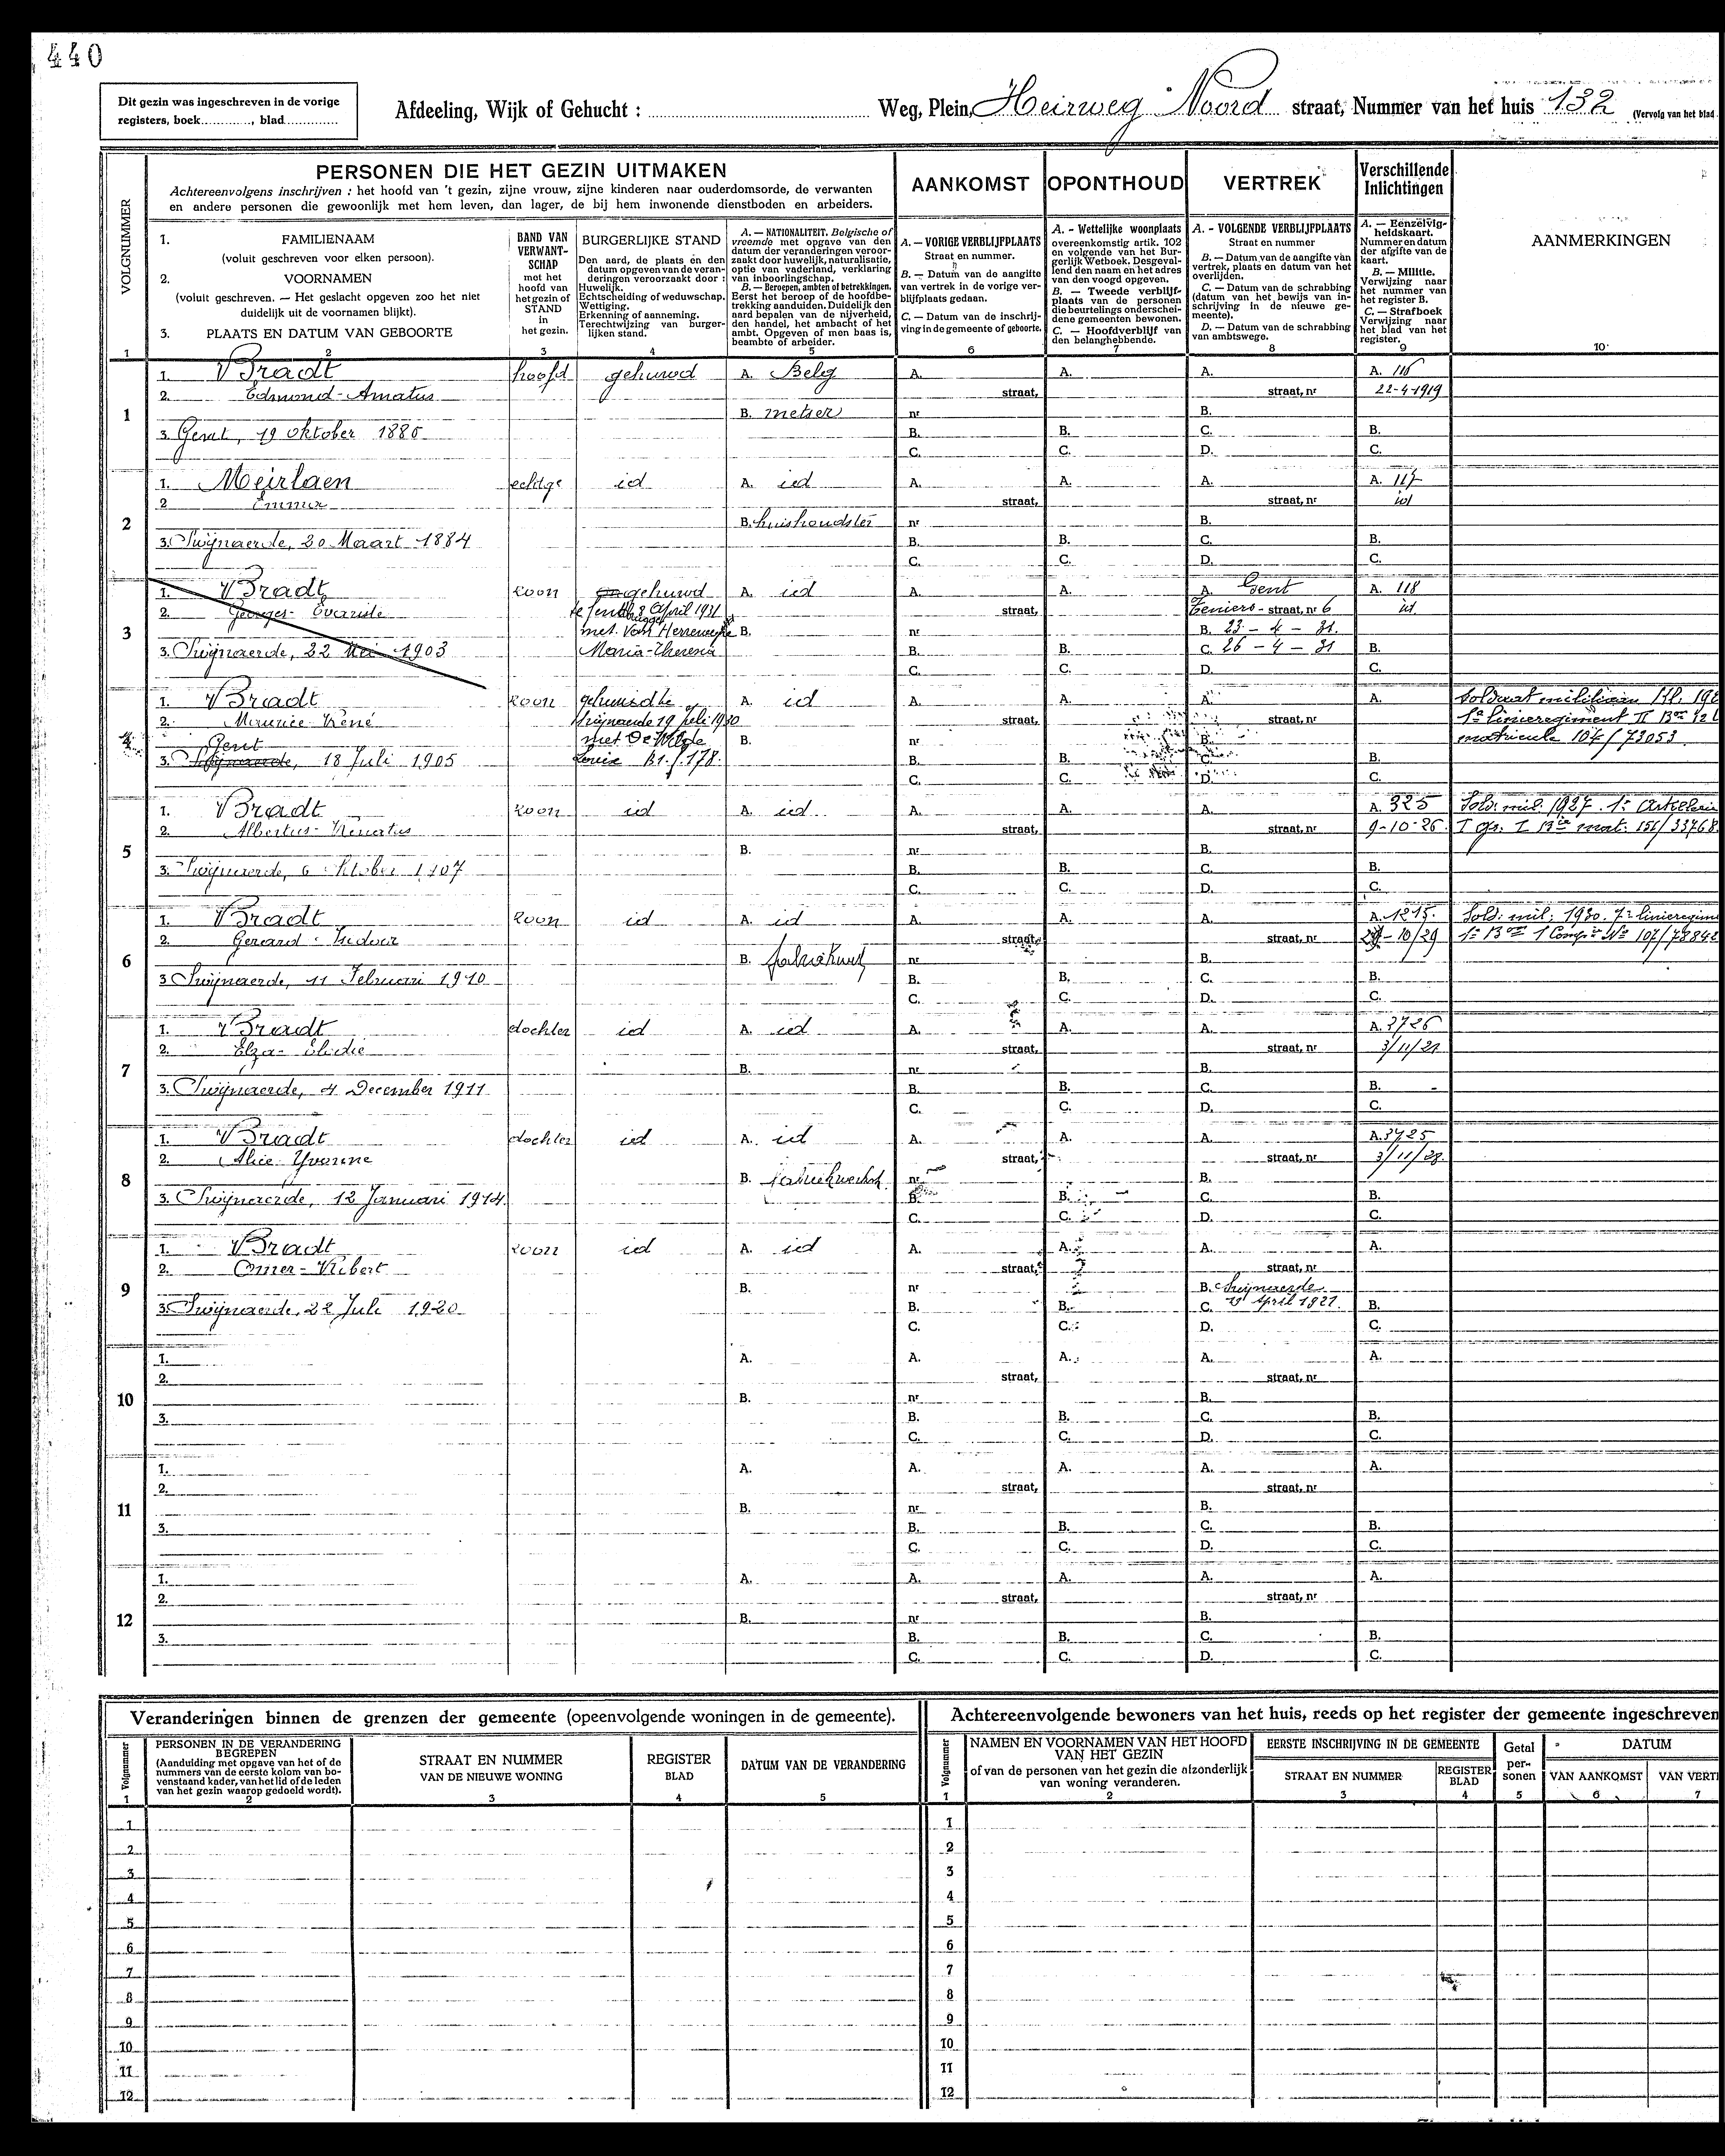 440
Dit gezin was ingeschreven in de vorige
registers, boek............, blad.............
Afdeeling, Wijk of Gehucht :
Weg, Plein, Heirweg Noord straat, Nummer van het huis 132 (Vervolg van het blad
PERSONEN DIE HET GEZIN UITMAKEN
Achtereenvolgens inschrijven : het hoofd van 't gezin, zijne vrouw, zijne kinderen naar ouderdomsorde, de verwanten
en andere personen die gewoonlijk met hem leven, dan lager, de bij hem inwonende dienstboden en arbeiders.
AANKOMST
OPONTHOUD
VERTREK
Verschillende
Inlichtingen
AANMERKINGEN
VOLGNUMMER
1. FAMILIENAAM
(voluit geschreven voor elken persoon).
2. VOORNAMEN
(voluit geschreven. — Het geslacht opgeven zoo het niet
duidelijk uit de voornamen blijkt).
3. PLAATS EN DATUM VAN GEBOORTE
BAND VAN
VERWANT-
SCHAP
met het
hoofd van
het gezin of
STAND
in
het gezin.
BURGERLIJKE STAND
Den aard, de plaats en den
datum opgeven van de veran-
deringen veroorzaakt door :
Huwelijk.
Echtscheiding of weduwschap.
Wettiging.
Erkenning of aanneming.
Terechtwijzing van burger-
lijken stand.
A. — NATIONALITEIT. Belgische of
vreemde met opgave van den
datum der veranderingen veroor-
zaakt door huwelijk, naturalisatie,
optie van vaderland, verklaring
van inboorlingschap.
B. — Beroepen, ambten of betrekkingen.
Eerst het beroep of de hoofdbe-
trekking aanduiden. Duidelijk den
aard bepalen van de nijverheid,
den handel, het ambacht of het
ambt. Opgeven of men baas is,
beambte of arbeider.
A. — VORIGE VERBLIJFPLAATS
Straat en nummer.
B. — Datum van de aangifte
van vertrek in de vorige ver-
blijfplaats gedaan.
C. — Datum van de inschrij-
ving in de gemeente of geboorte.
A. - Wettelijke woonplaats
overeenkomstig artik. 102
en volgende van het Bur-
gerlijk Wetboek. Desgeval-
lend den naam en het adres
van den voogd opgeven.
B. — Tweede verblijf-
plaats van de personen
die beurtelings onderschei-
dene gemeenten bewonen.
C. — Hoofdverblijf van
den belanghebbende.
A. - VOLGENDE VERBLIJFPLAATS
Straat en nummer
B. — Datum van de aangifte van
vertrek, plaats en datum van het
overlijden.
C. — Datum van de schrabbing
(datum van het bewijs van in-
schrijving in de nieuwe ge-
meente).
D. — Datum van de schrabbing
van ambtswege.
A. — Eenzelvig-
heidskaart.
Nummer en datum
der afgifte van de
kaart.
B. — Militie.
Verwijzing naar
het nummer van
het register B.
C. — Strafboek
Verwijzing naar
het blad van het
register.
1 2 3 4 5 6 7 8 9 10
1
1. Bradt hoofd gehuwd A. Belg A. A. A. A. 116
2. Edmond-Amatus straat, straat, nr 22-4-1919
B. metser nr B.
3. Gent, 19 oktober 1880 B. B. C. B.
C. C. D. C.
2
1. Meirlaen echtge id A. id A. A. A. A. 117
2 Emma straat, straat, nr id
B. huishoudster nr B.
3. Swijnaerde, 20 Maart 1884 B. B. C. B.
C. C. D. C.
3
1. Bradt zoon ongehuwd A. id A. A. A. Gent A. 118
2. Georges-Evariste te Gentbrugge 8 April 1931 straat, Teniers-straat, nr 6 id
met Van Herreweghe B. nr B. 23 - 4 - 31.
3. Swijnaerde, 22 Mei 1903 Maria-Theresia B. B. C. 26 - 4 - 31 B.
C. C. D. C.
4
1. Bradt zoon gehuwd te A. id A. A. A. A. Soldaat milicien
2. Maurice René Swijnaerde 19 Juli 1930 straat, straat, nr 1e linieregiment II
Gent met De Wilde B. nr B. matricule 104/73053
3. Swijnaerde, 18 Juli 1905 Louise B1. f. 178. B. B. C. B.
C. C. D. C.
5
1. Bradt zoon id A. id A. A. A. A. 325 Sold. mil. 1927. 1e Artillerie
2. Albertus-Renatus straat, straat, nr 9-10-26. I gr. I Bie mat: 151/33768
B. nr B.
3. Swijnaerde, 6 Oktober 1907 B. B. C. B.
C. C. D. C.
6
1. Bradt zoon id A. id A. A. A. A. 1215. Sold. mil. 1930. 7e linieregim
2. Gerard-Isidoor straat, straat, nr 29-10/29 1e Bon 1 Compie No 107/78842
B. fabriekwerk nr B.
3 Swijnaerde, 11 Februari 1910 B. B. C. B.
C. C. D. C.
7
1. Bradt dochter id A. id A. A. A. A. 3726
2. Elza-Elodie straat, straat, nr 3/11/27
B. nr B.
3. Swijnaerde, 4 December 1911 B. B. C. B.
C. C. D. C.
8
1. Bradt dochter id A. id A. A. A. A. 3725
2. Alice-Yvonne straat, straat, nr 3/11/28.
B. fabriekwerkst. nr B.
3. Swijnaerde, 12 Januari 1914. B. B. C. B.
C. C. D. C.
9
1. Bradt zoon id A. id A. A. A. A.
2. Omer-Robert straat, straat, nr
B. nr B. Swijnaerde
3. Swijnaerde, 22 Juli 1920 B. B. C. 13 April 1921. B.
C. C. D. C.
10
1. A. A. A. A. A.
2. straat, straat, nr
B. nr B.
3. B. B. C. B.
C. C. D. C.
11
1. A. A. A. A. A.
2. straat, straat, nr
B. nr B.
3. B. B. C. B.
C. C. D. C.
12
1. A. A. A. A. A.
2. straat, straat, nr
B. nr B.
3. B. B. C. B.
C. C. D. C.
Veranderingen binnen de grenzen der gemeente (opeenvolgende woningen in de gemeente).
Volgnummer
PERSONEN IN DE VERANDERING
BEGREPEN
(Aanduiding met opgave van het of de
nummers van de eerste kolom van bo-
venstaand kader, van het lid of de leden
van het gezin waarop gedoeld wordt).
STRAAT EN NUMMER
VAN DE NIEUWE WONING
REGISTER
BLAD
DATUM VAN DE VERANDERING
1 2 3 4 5
1
2
3
4
5
6
7
8
9
10
11
12
Achtereenvolgende bewoners van het huis, reeds op het register der gemeente ingeschreven
Volgnummer
NAMEN EN VOORNAMEN VAN HET HOOFD
VAN HET GEZIN
of van de personen van het gezin die afzonderlijk
van woning veranderen.
EERSTE INSCHRIJVING IN DE GEMEENTE
STRAAT EN NUMMER
REGISTER
BLAD
Getal
per-
sonen
DATUM
VAN AANKOMST
VAN VERT
1 2 3 4 5 6 7
1
2
3
4
5
6
7
8
9
10
11
12